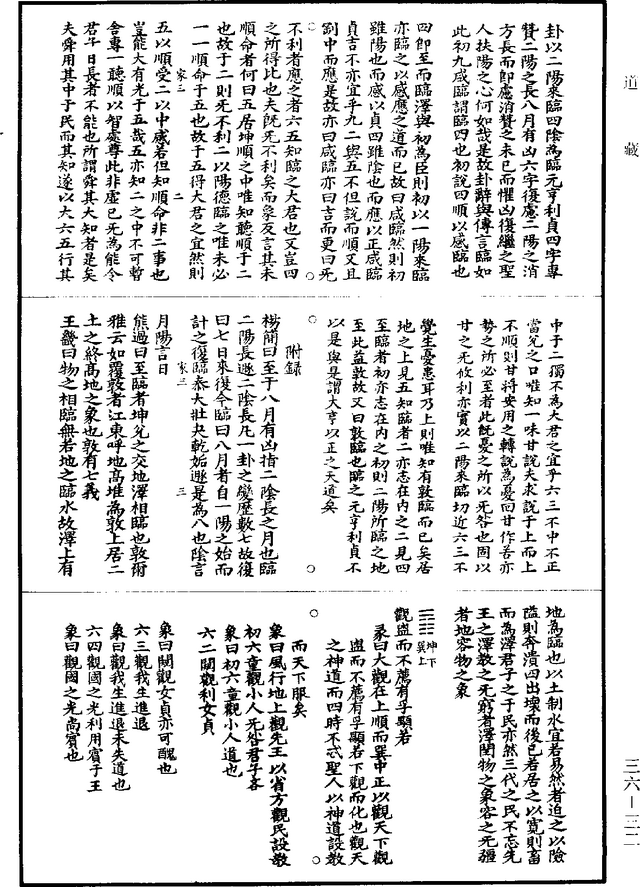 道藏
卦以二陽來臨四陰為臨元亨利貞四字專
贊二陽之長八月有凶六字復慮二陽之消
方長而即慮消贊之未已而懼凶復繼之聖
人扶陽之心何如哉是故卦辭與傳言臨如
此初九咸臨謂臨四也初說四順以感臨也
四即至而臨澤與初為臣則初以一陽來臨
亦臨之以感應之道而已故曰咸臨然則初
雖陽也而感以貞四雖陰也而應以正咸臨
貞吉不亦宜乎九二與五不但說而順又且
剛中而應是故亦曰咸臨亦曰吉而更曰无
不利者應之者六五知臨之大君也又豈四
之所得比也夫既无不利矣而象反言其未
順命者何曰五居坤順之中唯知聽順于二
也故于二則无不利二以陽德臨之唯未必
一一順命于五也故于五得大君之宜然則
家三 二
五以順受二以中感若但知順命非二事也
豈能大有光于五哉五亦知二之中不可暫
舍專一聽順以智處尊此非虛已无為能令
君子日長者不能也所謂舜其大知者是矣
夫舜用其中于民而其知遂以大六五行其
中于二獨不為大君之宜乎六三不中不正
當兌之口唯知一味甘說夫求說于上而上
不順則甘將安用之轉說為憂回甘作苦亦
勢之所必至者此既憂之所以无咎也固以
甘之无攸利亦實以二陽來臨切近六三不
覺生憂患耳乃上則唯知有敦臨而已矣居
地之上見五知臨者二亦志在內之二見四
至臨者初亦志在內之初則二陽所臨之地
至此益敦故又曰敦臨也臨之元亨利貞不
以是與是謂大亨以正之天道矣
附錄
楊簡曰至于八月有凶指二陰長之月也臨
二陽長遯二陰長凡一卦之變歷數七故復
曰七日來復今臨曰八月者自一陽之始而
計之復臨泰大壯夬乾姤遯是為八也陰言
家三 三
月陽言日
熊過曰至臨者坤兌之交地澤相臨也敦爾
雅云如覆敦者江東呼地高堆為敦上居二
土之終高地之象也敦有七義
王畿曰物之相臨無若地之臨水故澤上有
地為臨也以土制水宜若易然者迫之以險
隘則奔潰四出壞而後已若居之以寬則畜
而為澤君子之于民亦然三代之民不忘先
王之澤教之无窮者澤閏物之象容之无疆
者地容物之象
坤下
巽上
觀盥而不薦有孚顒若
彖曰大觀在上順而巽中正以觀天下觀
盥而不薦有孚顒若下觀而化也觀天
之神道而四時不忒聖人以神道設教
而天下服矣
象曰風行地上觀先王以省方觀民設教
初六童觀小人无咎君子吝
象曰初六童觀小人道也
六二闚觀利女貞
象曰闚觀女貞亦可醜也
六三觀我生進退
象曰觀我生進退未失道也
六四觀國之光利用賓于王
象曰觀國之光尚賓也
三六—三二